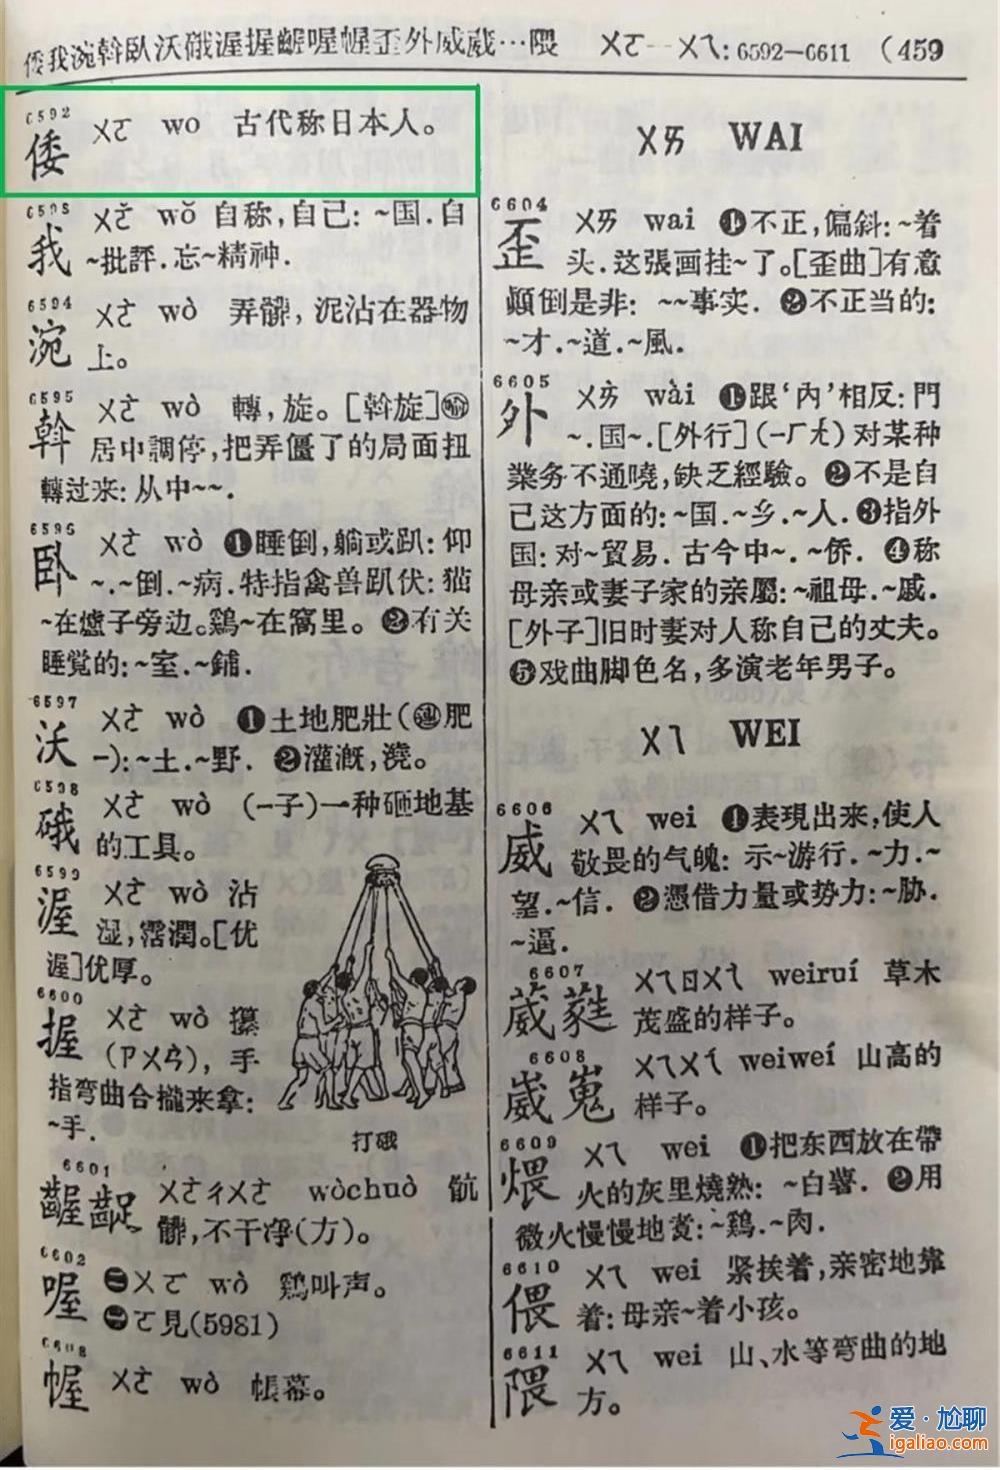 倭我涴斡臥沃硪渥握齷喔幄歪外威葳…隈 ㄨㄛ—ㄨㄟ: 6592—6611 (459
6592
倭 ㄨㄛ wo 古代称日本人。
我 ㄨㄛˇ wǒ 自称,自己: ~国.自
~批評.忘~精神.
6594
涴 ㄨㄛˋ wò 弄髒, 泥沾在器物
上。
6595
斡 ㄨㄛˋ wò 轉,旋。[斡旋]㊙
居中調停,把弄僵了的局面扭
轉过来: 从中~~.
臥 ㄨㄛˋ wò ❶睡倒,躺或趴: 仰
~.~倒.~病.特指禽兽趴伏: 猫
~在爐子旁边。鷄~在窩里。❷有关
睡覚的:~室.~鋪.
6597
沃 ㄨㄛˋ wò ❶土地肥壯(連肥
—):~土.~野. ❷灌漑,澆。
6598
硪 ㄨㄛˋ wò (—子)一种砸地基
的工具。
6599
渥 ㄨㄛˋ wò 沾
湿,霑潤。[优
渥]优厚。
6600
握 ㄨㄛˋ wò 攥
(ㄗㄨㄢˋ), 手
指弯曲合攏来拿:
~手.
打硪
6601
齷齪 ㄨㄛˋㄔㄨㄛˋ wòchuò 骯
髒,不干凈(方)。
6602
喔 ㊀ㄨㄛ wò 鷄叫声。
㊁ㄛ見(5981)
幄 ㄨㄛˋ wò 帳幕。
ㄨㄞ WAI
6604
歪 ㄨㄞ wai ❶不正,偏斜:~着
头.这張画挂~了。[歪曲]有意
顚倒是非: ~~事实. ❷不正当的:
~才.~道.~風.
6605
外 ㄨㄞˋ wài ❶跟‘内’相反: 門
~.国~.[外行](—ㄏㄤˊ)对某种
業务不通曉,缺乏經驗。❷不是自
己这方面的:~国.~乡.~人.❸指外
国: 对~貿易. 古今中~. ~侨. ❹称
母亲或妻子家的亲屬:~祖母.~戚.
[外子]旧时妻对人称自己的丈夫。
❺戏曲脚色名,多演老年男子。
ㄨㄟ WEI
6606
威 ㄨㄟ wei ❶表現出来,使人
敬畏的气魄: 示~游行. ~力.~
望.~信. ❷憑借力量或势力:~胁.
~逼.
6607
葳蕤 ㄨㄟㄖㄨㄟˊ weiruí 草木
茂盛的样子。
6608
崴嵬 ㄨㄟㄨㄟˊ weiweí 山高的
样子。
6609
煨 ㄨㄟ wei ❶把东西放在帶
火的灰里燒熟: ~白薯. ❷用
微火慢慢地煑:~鷄.~肉.
6610
偎 ㄨㄟ wei 紧挨着,亲密地靠
着: 母亲~着小孩。
6611
隈 ㄨㄟ wei 山、水等弯曲的地
方。
爱·尬聊
igaliao.com